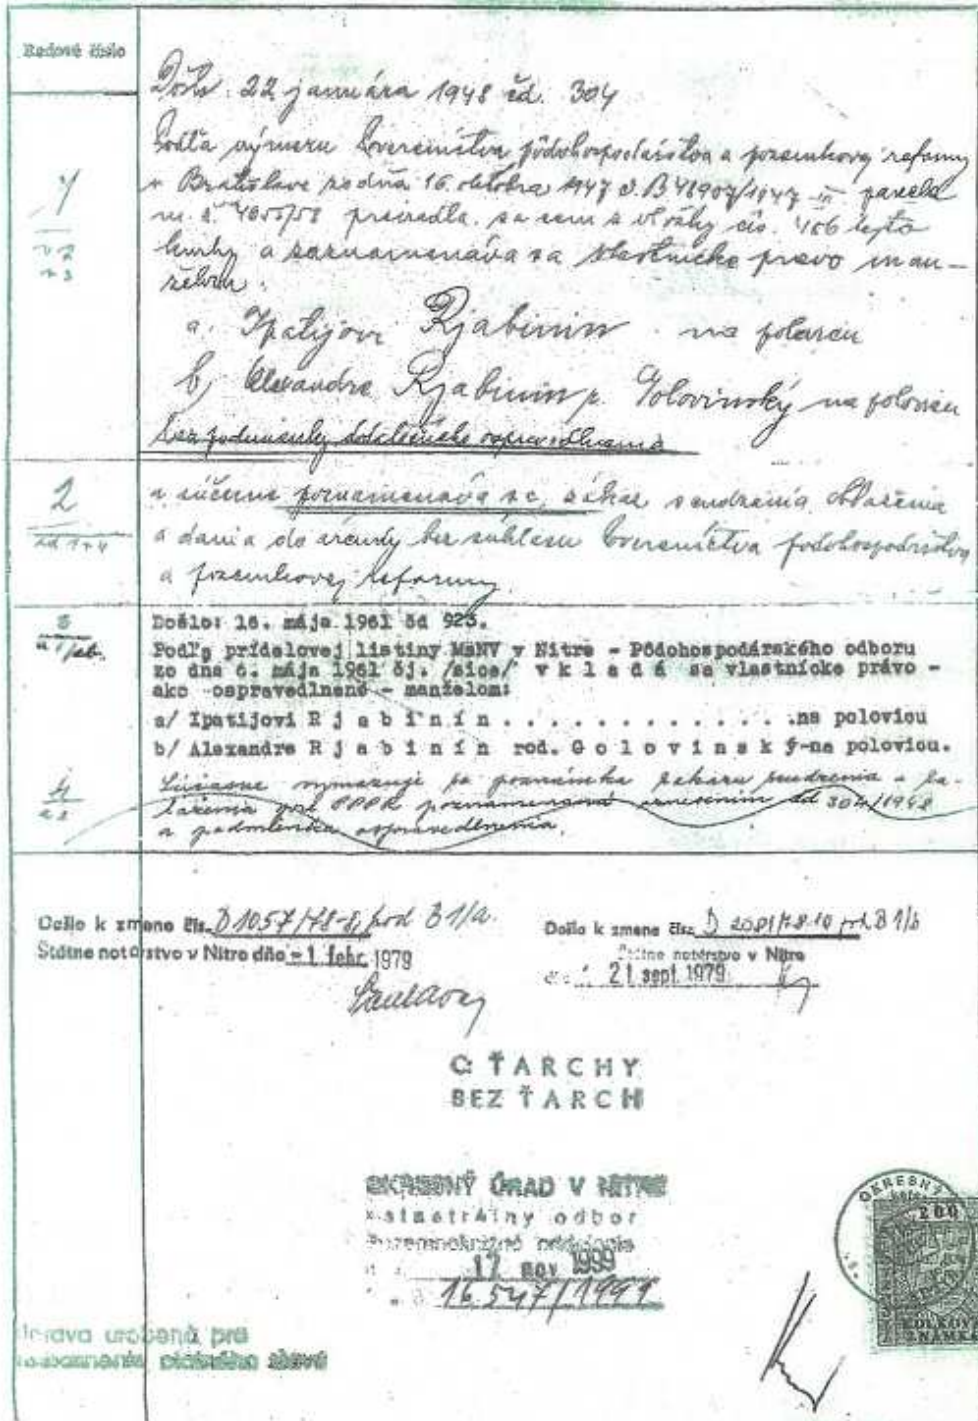 Radové číslo
Došlo: 22 januára 1948 čd. 304
1
Podľa výmeru Povereníctva pôdohospodárstva a pozemkovej reformy
v Bratislave zo dňa 16. októbra 1947 č. B 48907/1947-III parcela
m. č. 4655/58 prevedla sa sem z vložky čís. 486 tejto
knihy a zaznamenáva sa vlastnícke právo man-
želom:
a. Ipatijovi Rjabinin na polovicu
b, Alexandre Rjabinin r. Golovinský na polovicu
bez podmienky ospravedlnenia
2
ad 1+4
a súčasne poznamenáva sa, zákaz scudzenia, obťaženia
a dania do árendy bez súhlasu Povereníctva pôdohospodárstva
a pozemkovej reformy.
3
Došlo: 16. mája 1961 čd 925.
Podľa prídelovej listiny MsNV v Nitre - Pôdohospodárského odboru
zo dňa 6. mája 1961 čj. /sice/ v k l a d á sa vlastnícke právo -
ako ospravedlnené - manželom:
a/ Ipatijovi R j a b i n í n . . . . . . . . . . . . . .na polovicu
b/ Alexandre R j a b i n í n rod. G o l o v i n s k ý-na polovicu.
4
Súčasne vymazuje sa poznámka zákazu scudzenia a za-
ťaženia pre PPPR poznamenaná uznesením čd 304/1948
a podmienka ospravedlnenia.
Došlo k zmene čís. D 1057/78-8, pod B 1/a. Došlo k zmene čís. D 2081/78-10 pod B 1/b
Štátne notárstvo v Nitre dňa - 1. febr. 1979 Štátne notárstvo v Nitre
21. sept. 1979
C: ŤARCHY
BEZ ŤARCH
OKRESNÝ ÚRAD V NITRE
katastrálny odbor
Pozemnoknižné oddelenie
17 nov 1999
16.547/1999
OKRESNÝ
200
KOLKOVÁ
ZNÁMKA
urobená pre